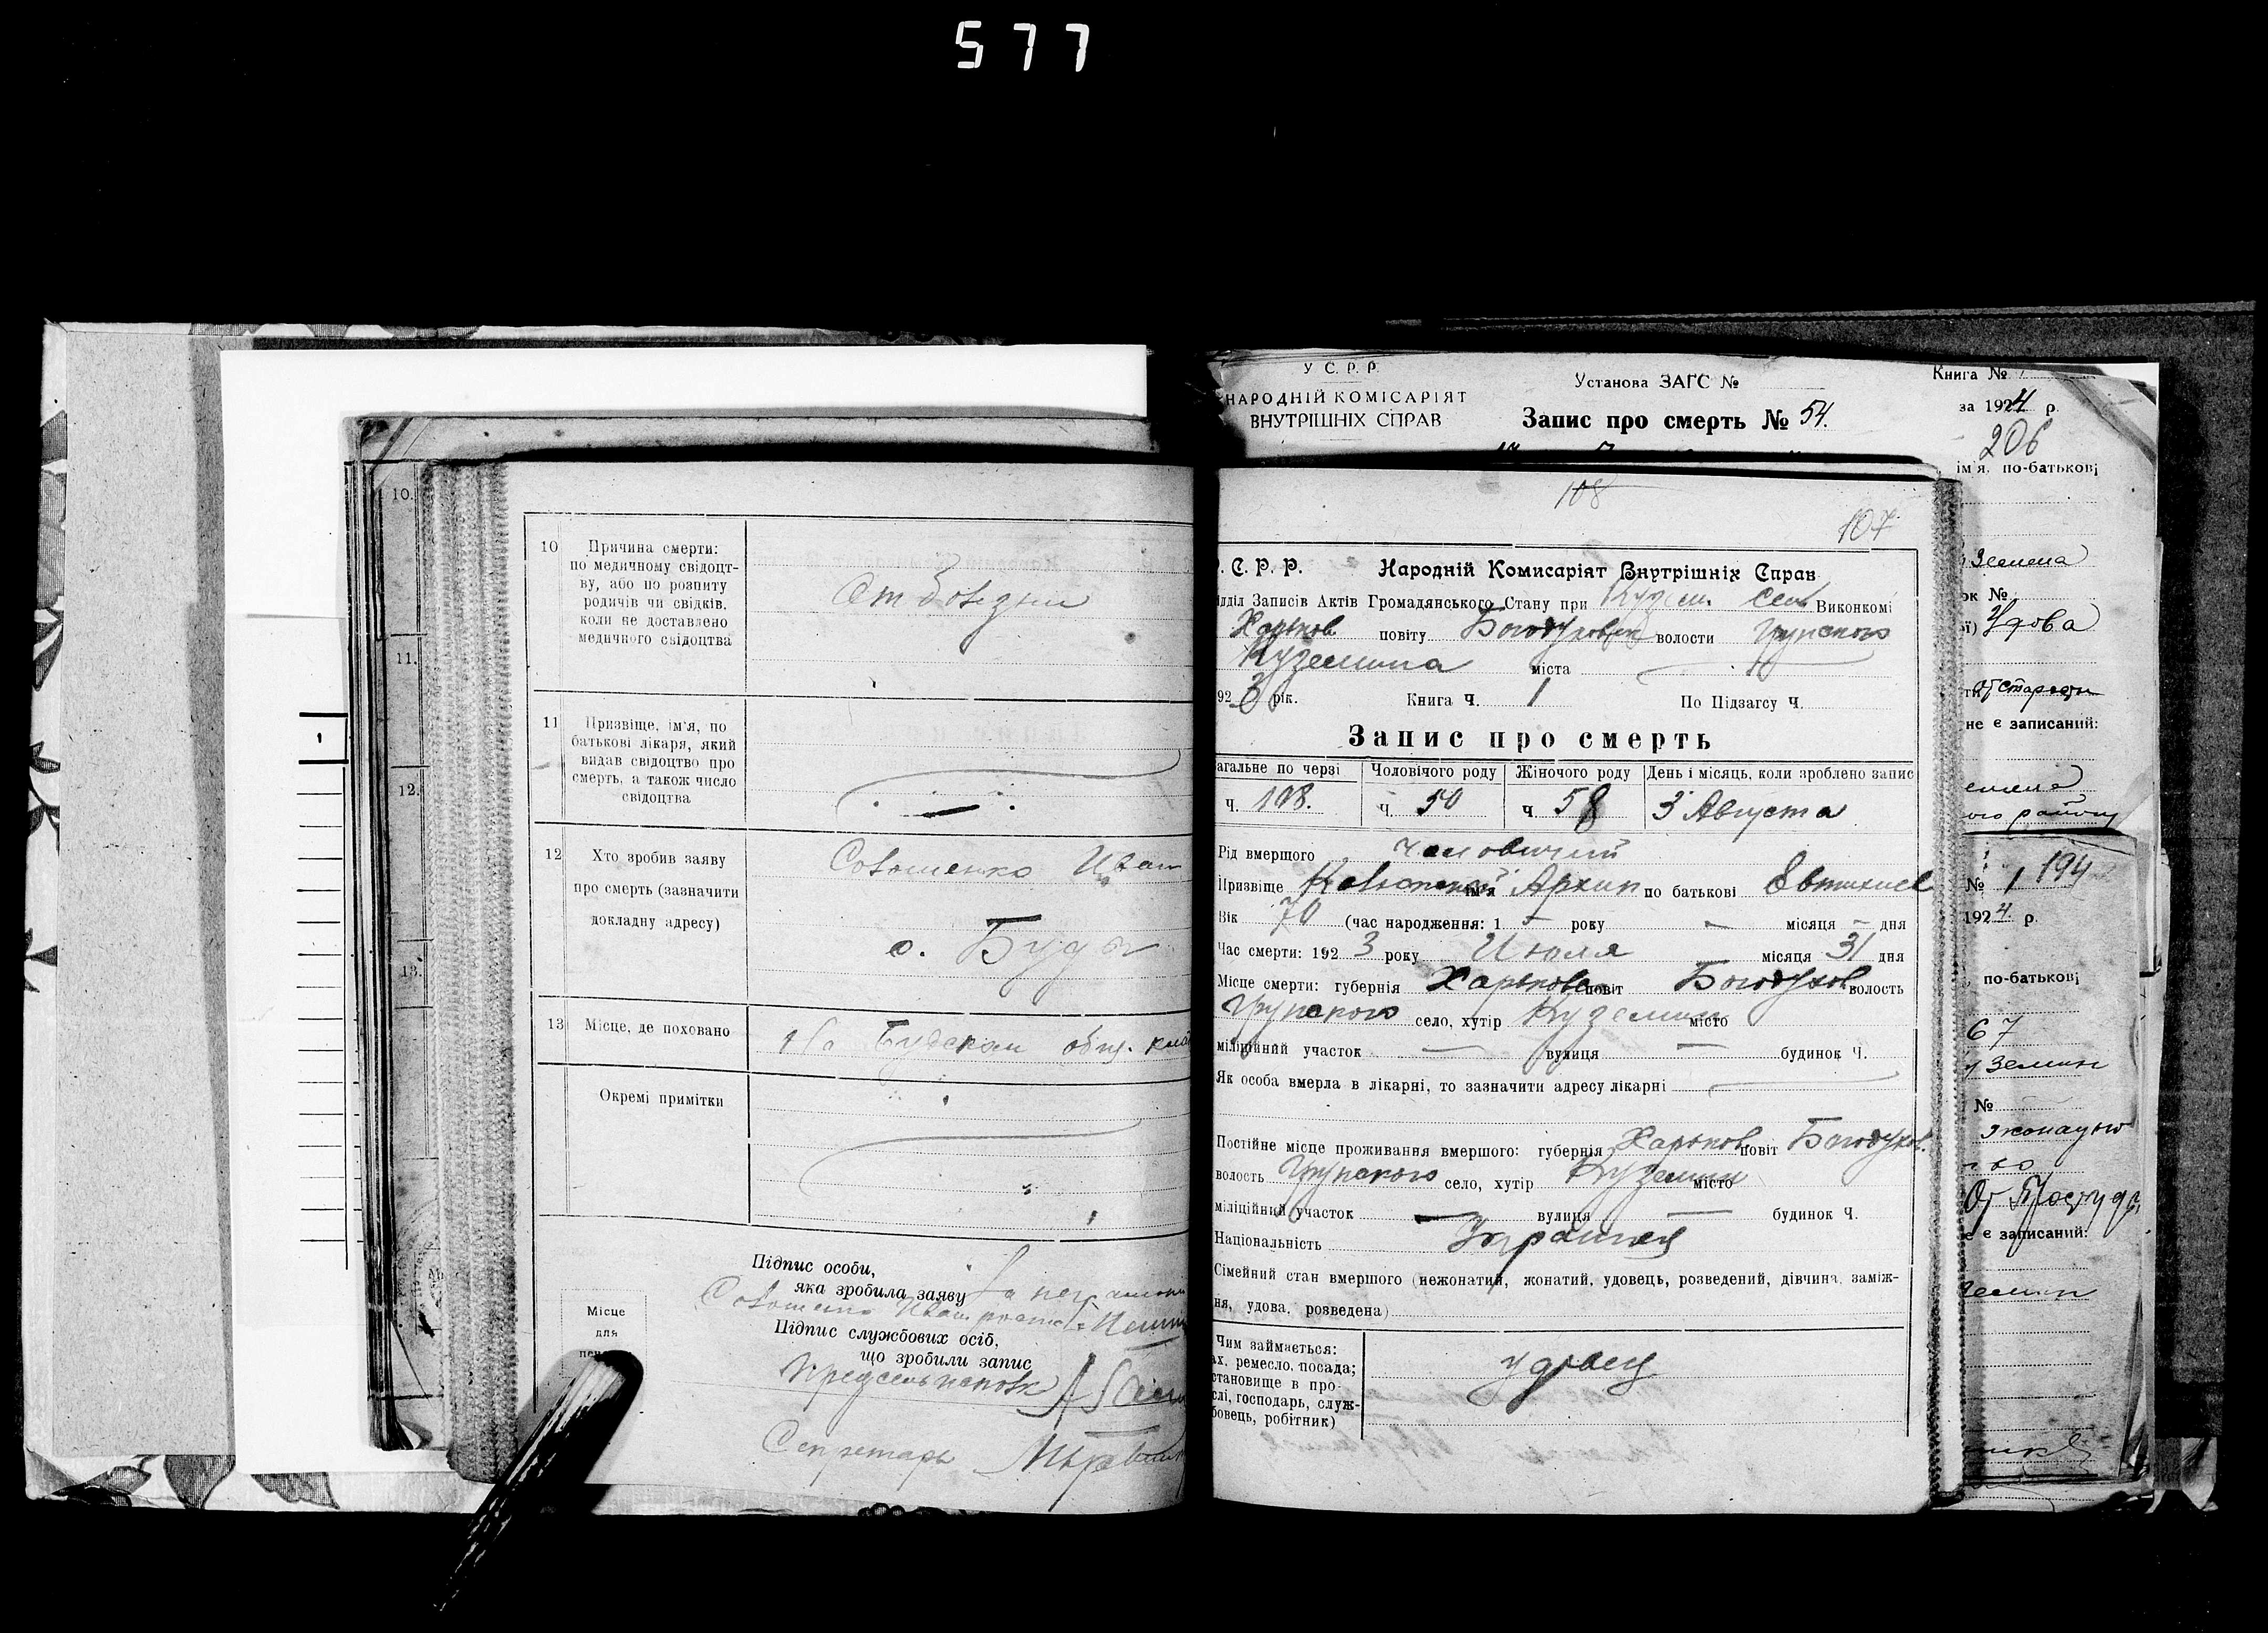 577
10.
11.
12.
13.
1
10 Причина смерти:
по медичному свідоцт-
ву, або по розпиту
родичів чи свідків.
коли не доставлено
медичного свідоцтва
От болезни
11 Призвіще, ім'я, по
батькові лікаря, який
видав свідоцтво про
смерть, а також число
свідоцтва
12 Хто зробив заяву
про смерть (зазначити
докладну адресу)
Иван
с. Буды
13 Місце, де поховано
На Будском общ. клад
Окремі примітки
Підпис особи,
яка зробила заяву
Иван
Підпис службових осіб,
що зробили запис
Місце
для
Секретарь
У С. Р. Р.
НАРОДНІЙ КОМІСАРІЯТ
ВНУТРІШНІХ СПРАВ
Установа ЗАГС №
Запис про смерть № 54.
Книга №
за 1924 р.
206
ім'я, по-батькові
108
107
. С. Р. Р. Народній Комисаріят Внутрішніх Справ
ідділ Записів Актів Громадянського Стану при Кузем. Сель Виконкомі
Харьков повіту Богодуховск волости Грунского
Куземина міста
923 рік. Книга Ч. 1 По Підзагсу Ч.
Запис про смерть
агальне по черзі Чоловічого роду Жіночого роду День і місяць, коли зроблено запис
ч. 108. ч. 50 ч 58 3 Августа
Рід вмершого чоловичий
Призвіще ім'я Архип по батькові Евтихиев
Вік 70 (час народження: 1 — року — місяця — дня
Час смерти: 1923 року Июля місяця 31 дня
Місце смерти: губернія Харьковс повіт Богодухов волость
Грунского село, хутір Куземин місто
міліційний участок — вулиця — будинок Ч.
Як особа вмерла в лікарні, то зазначити адресу лікарні
Постійне місце проживання вмершого: губернія Харьков повіт Богодухов.
волость Грунского село, хутір Куземин місто
міліційний участок — вулиця — будинок Ч.
Національність Украинец
Сімейний стан вмершого (нежонатий, жонатий, удовець, розведений, дівчина, заміж-
ня, удова, розведена)
Чим займається:
ах, ремесло, посада;
становище в про-
слі, господарь, служ-
бовець, робітник)
удовец
Земена
ок №
ії) Удова
ти от старости
не є записаний:
ого району
№ 1 194
1924 р.
по-батькові
67
у Земин
№
От Простуды
е є записаний:
земин